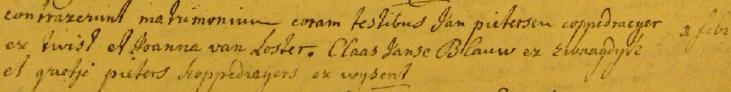 contraxerunt matrimonium coram testibus Jan pietersen coppedraeyer
ex twist et Joanna van Loster. Claas Janse Blauw ex Swaagdyck 2 febr
et grietje pieters koppedraeyers ex wysent